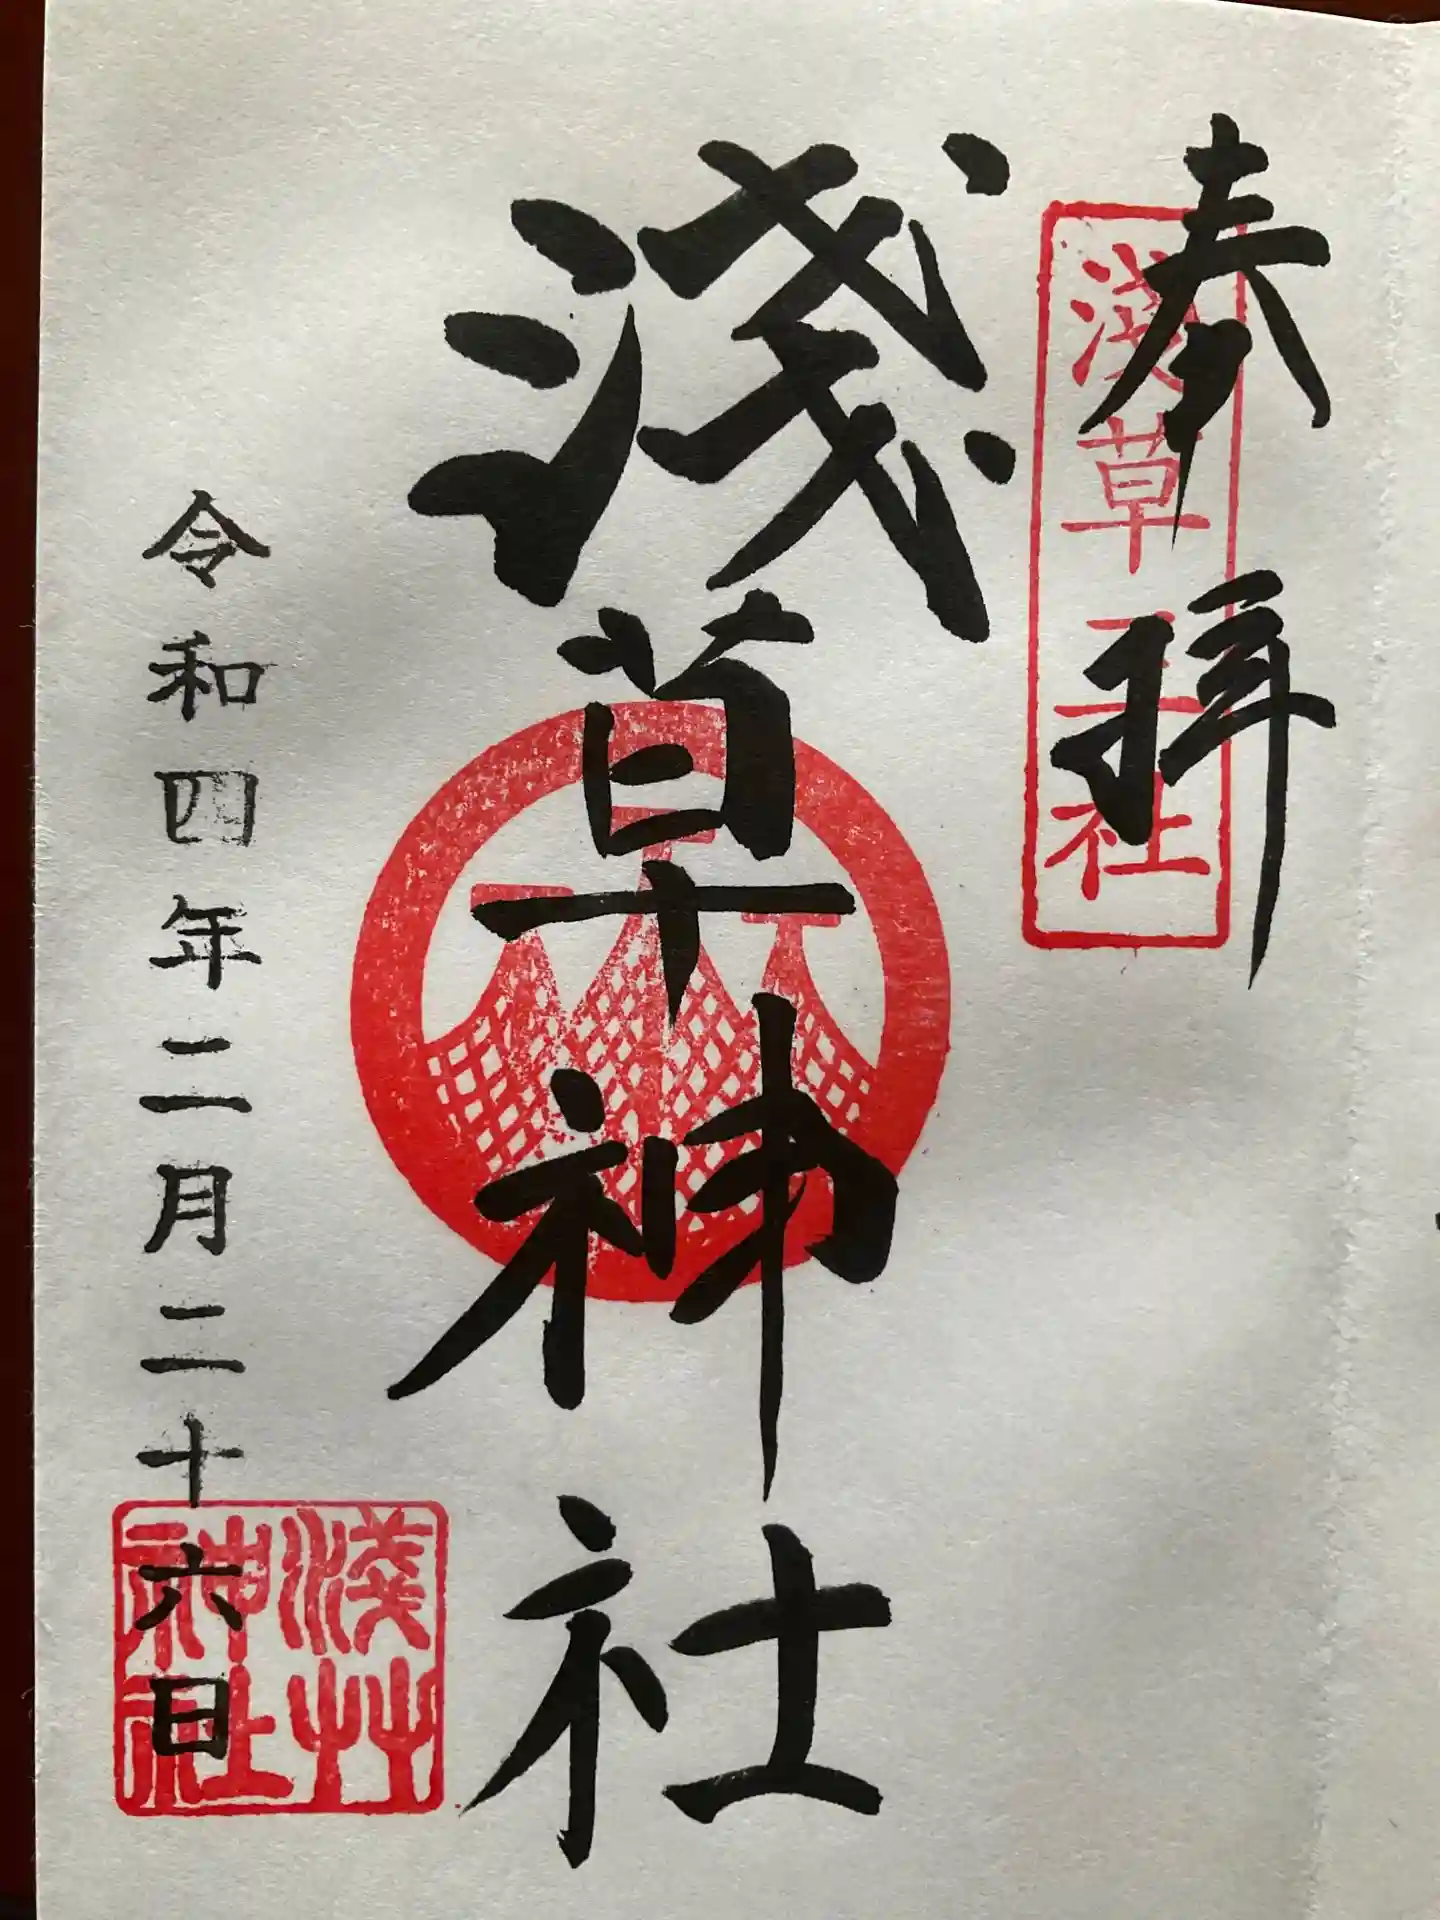 奉拝
淺草三社
淺草神社
令和四年二月二十六日
淺艸神社